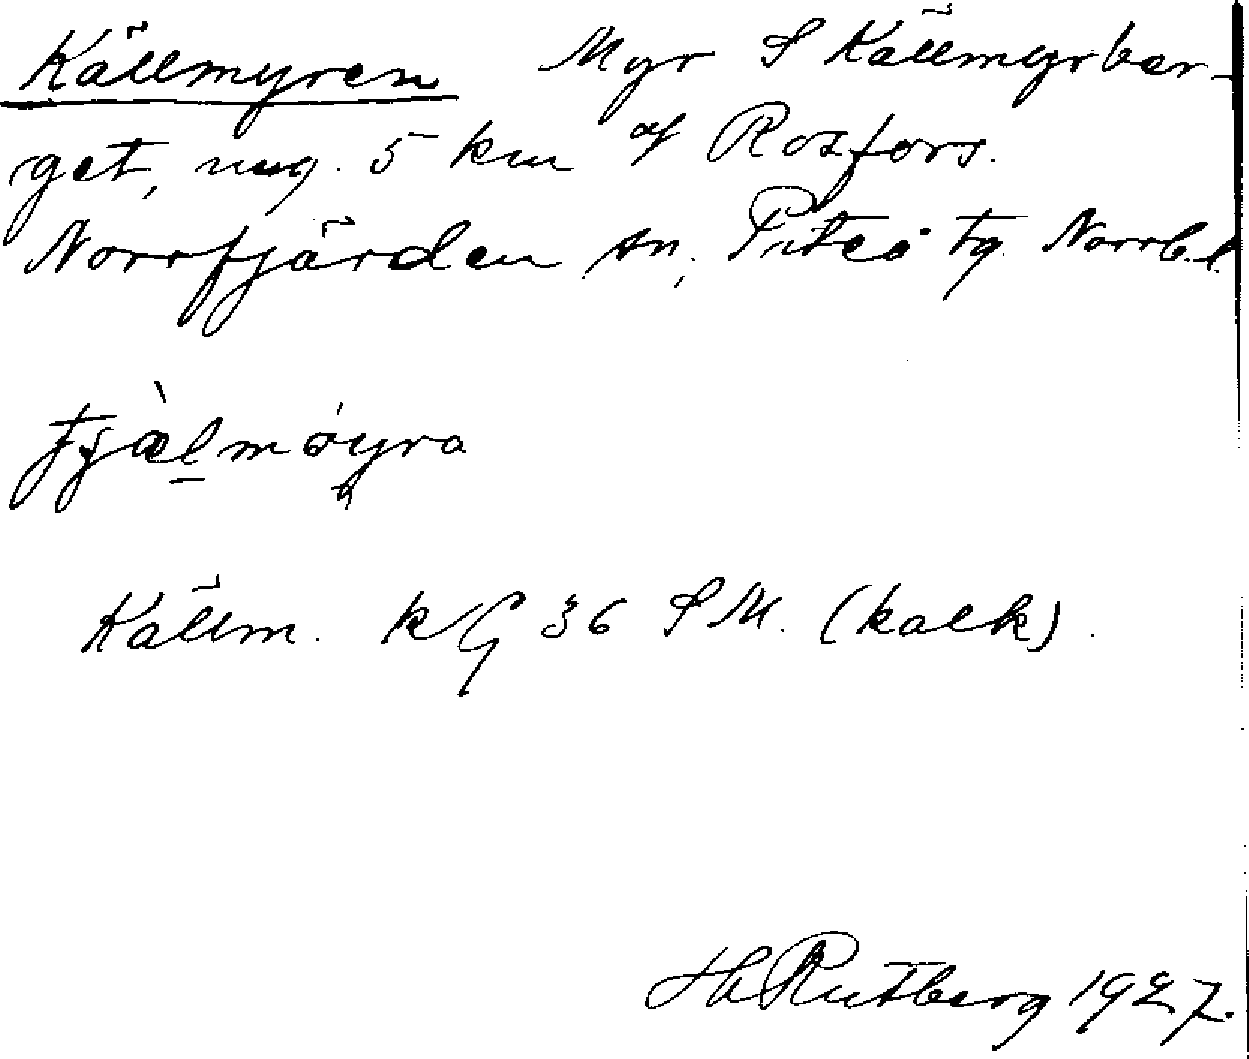 Källmyren Myr S Källmyrber-
get, ung. 5 km af Rosfors.
Norrfjärden sn, Piteå tg. Norrb.l.
Källm. kG 36 SM. (kalk).
Hb Rutberg 1927.